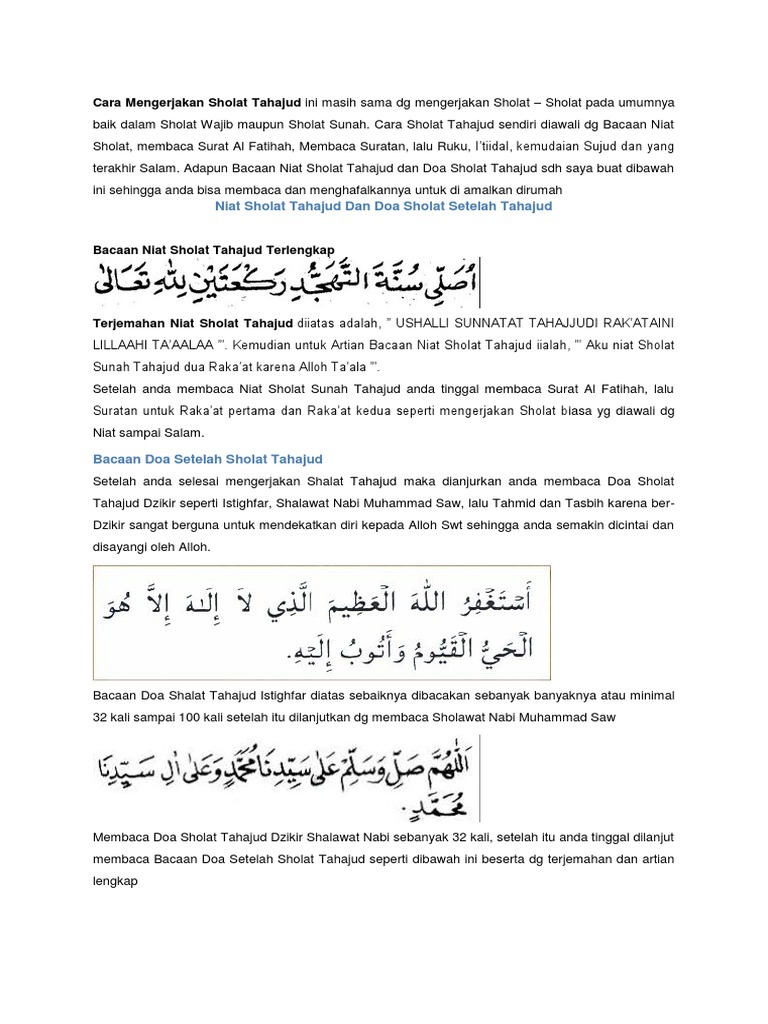 Cara Mengerjakan Sholat Tahajud ini masih sama dg mengerjakan Sholat – Sholat pada umumnya
baik dalam Sholat Wajib maupun Sholat Sunah. Cara Sholat Tahajud sendiri diawali dg Bacaan Niat
Sholat, membaca Surat Al Fatihah, Membaca Suratan, lalu Ruku, I’tiidal, kemudaian Sujud dan yang
terakhir Salam. Adapun Bacaan Niat Sholat Tahajud dan Doa Sholat Tahajud sdh saya buat dibawah
ini sehingga anda bisa membaca dan menghafalkannya untuk di amalkan dirumah
Niat Sholat Tahajud Dan Doa Sholat Setelah Tahajud
Bacaan Niat Sholat Tahajud Terlengkap
اُصَلِّى سُنَّةَ التَّهَجُّدِ رَكْعَتَيْنِ لِلّٰهِ تَعَالٰى
Terjemahan Niat Sholat Tahajud diiatas adalah, ” USHALLI SUNNATAT TAHAJJUDI RAK’ATAINI
LILLAAHI TA’AALAA ”’. Kemudian untuk Artian Bacaan Niat Sholat Tahajud iialah, ”’ Aku niat Sholat
Sunah Tahajud dua Raka’at karena Alloh Ta’ala ”’.
Setelah anda membaca Niat Sholat Sunah Tahajud anda tinggal membaca Surat Al Fatihah, lalu
Suratan untuk Raka’at pertama dan Raka’at kedua seperti mengerjakan Sholat biasa yg diawali dg
Niat sampai Salam.
Bacaan Doa Setelah Sholat Tahajud
Setelah anda selesai mengerjakan Shalat Tahajud maka dianjurkan anda membaca Doa Sholat
Tahajud Dzikir seperti Istighfar, Shalawat Nabi Muhammad Saw, lalu Tahmid dan Tasbih karena ber-
Dzikir sangat berguna untuk mendekatkan diri kepada Alloh Swt sehingga anda semakin dicintai dan
disayangi oleh Alloh.
أَسْتَغْفِرُ اللهَ الْعَظِيمَ الَّذِي لاَ إِلَـٰهَ إِلاَّ هُوَ
الْحَيُّ الْقَيُّومُ وَأَتُوبُ إِلَيْهِ.
Bacaan Doa Shalat Tahajud Istighfar diatas sebaiknya dibacakan sebanyak banyaknya atau minimal
32 kali sampai 100 kali setelah itu dilanjutkan dg membaca Sholawat Nabi Muhammad Saw
اَللّٰهُمَّ صَلِّ وَسَلِّمْ عَلٰى سَيِّدِنَا مُحَمَّدٍ وَعَلٰى اٰلِ سَيِّدِنَا
مُحَمَّدٍ.
Membaca Doa Sholat Tahajud Dzikir Shalawat Nabi sebanyak 32 kali, setelah itu anda tinggal dilanjut
membaca Bacaan Doa Setelah Sholat Tahajud seperti dibawah ini beserta dg terjemahan dan artian
lengkap